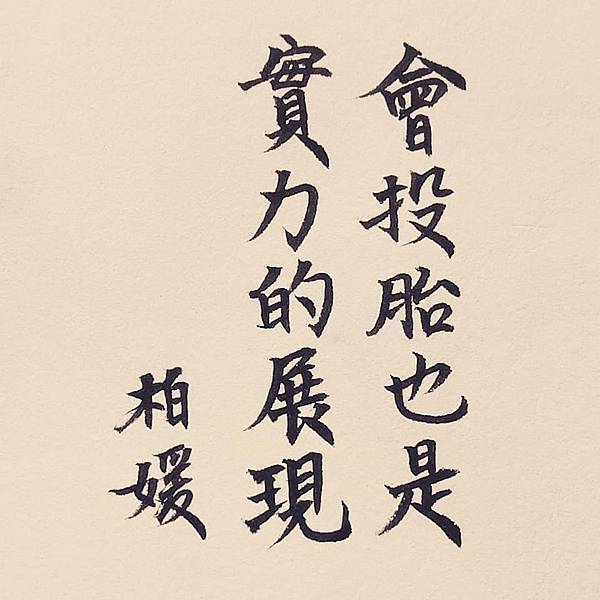 會投胎也是
實力的展現
柏媛